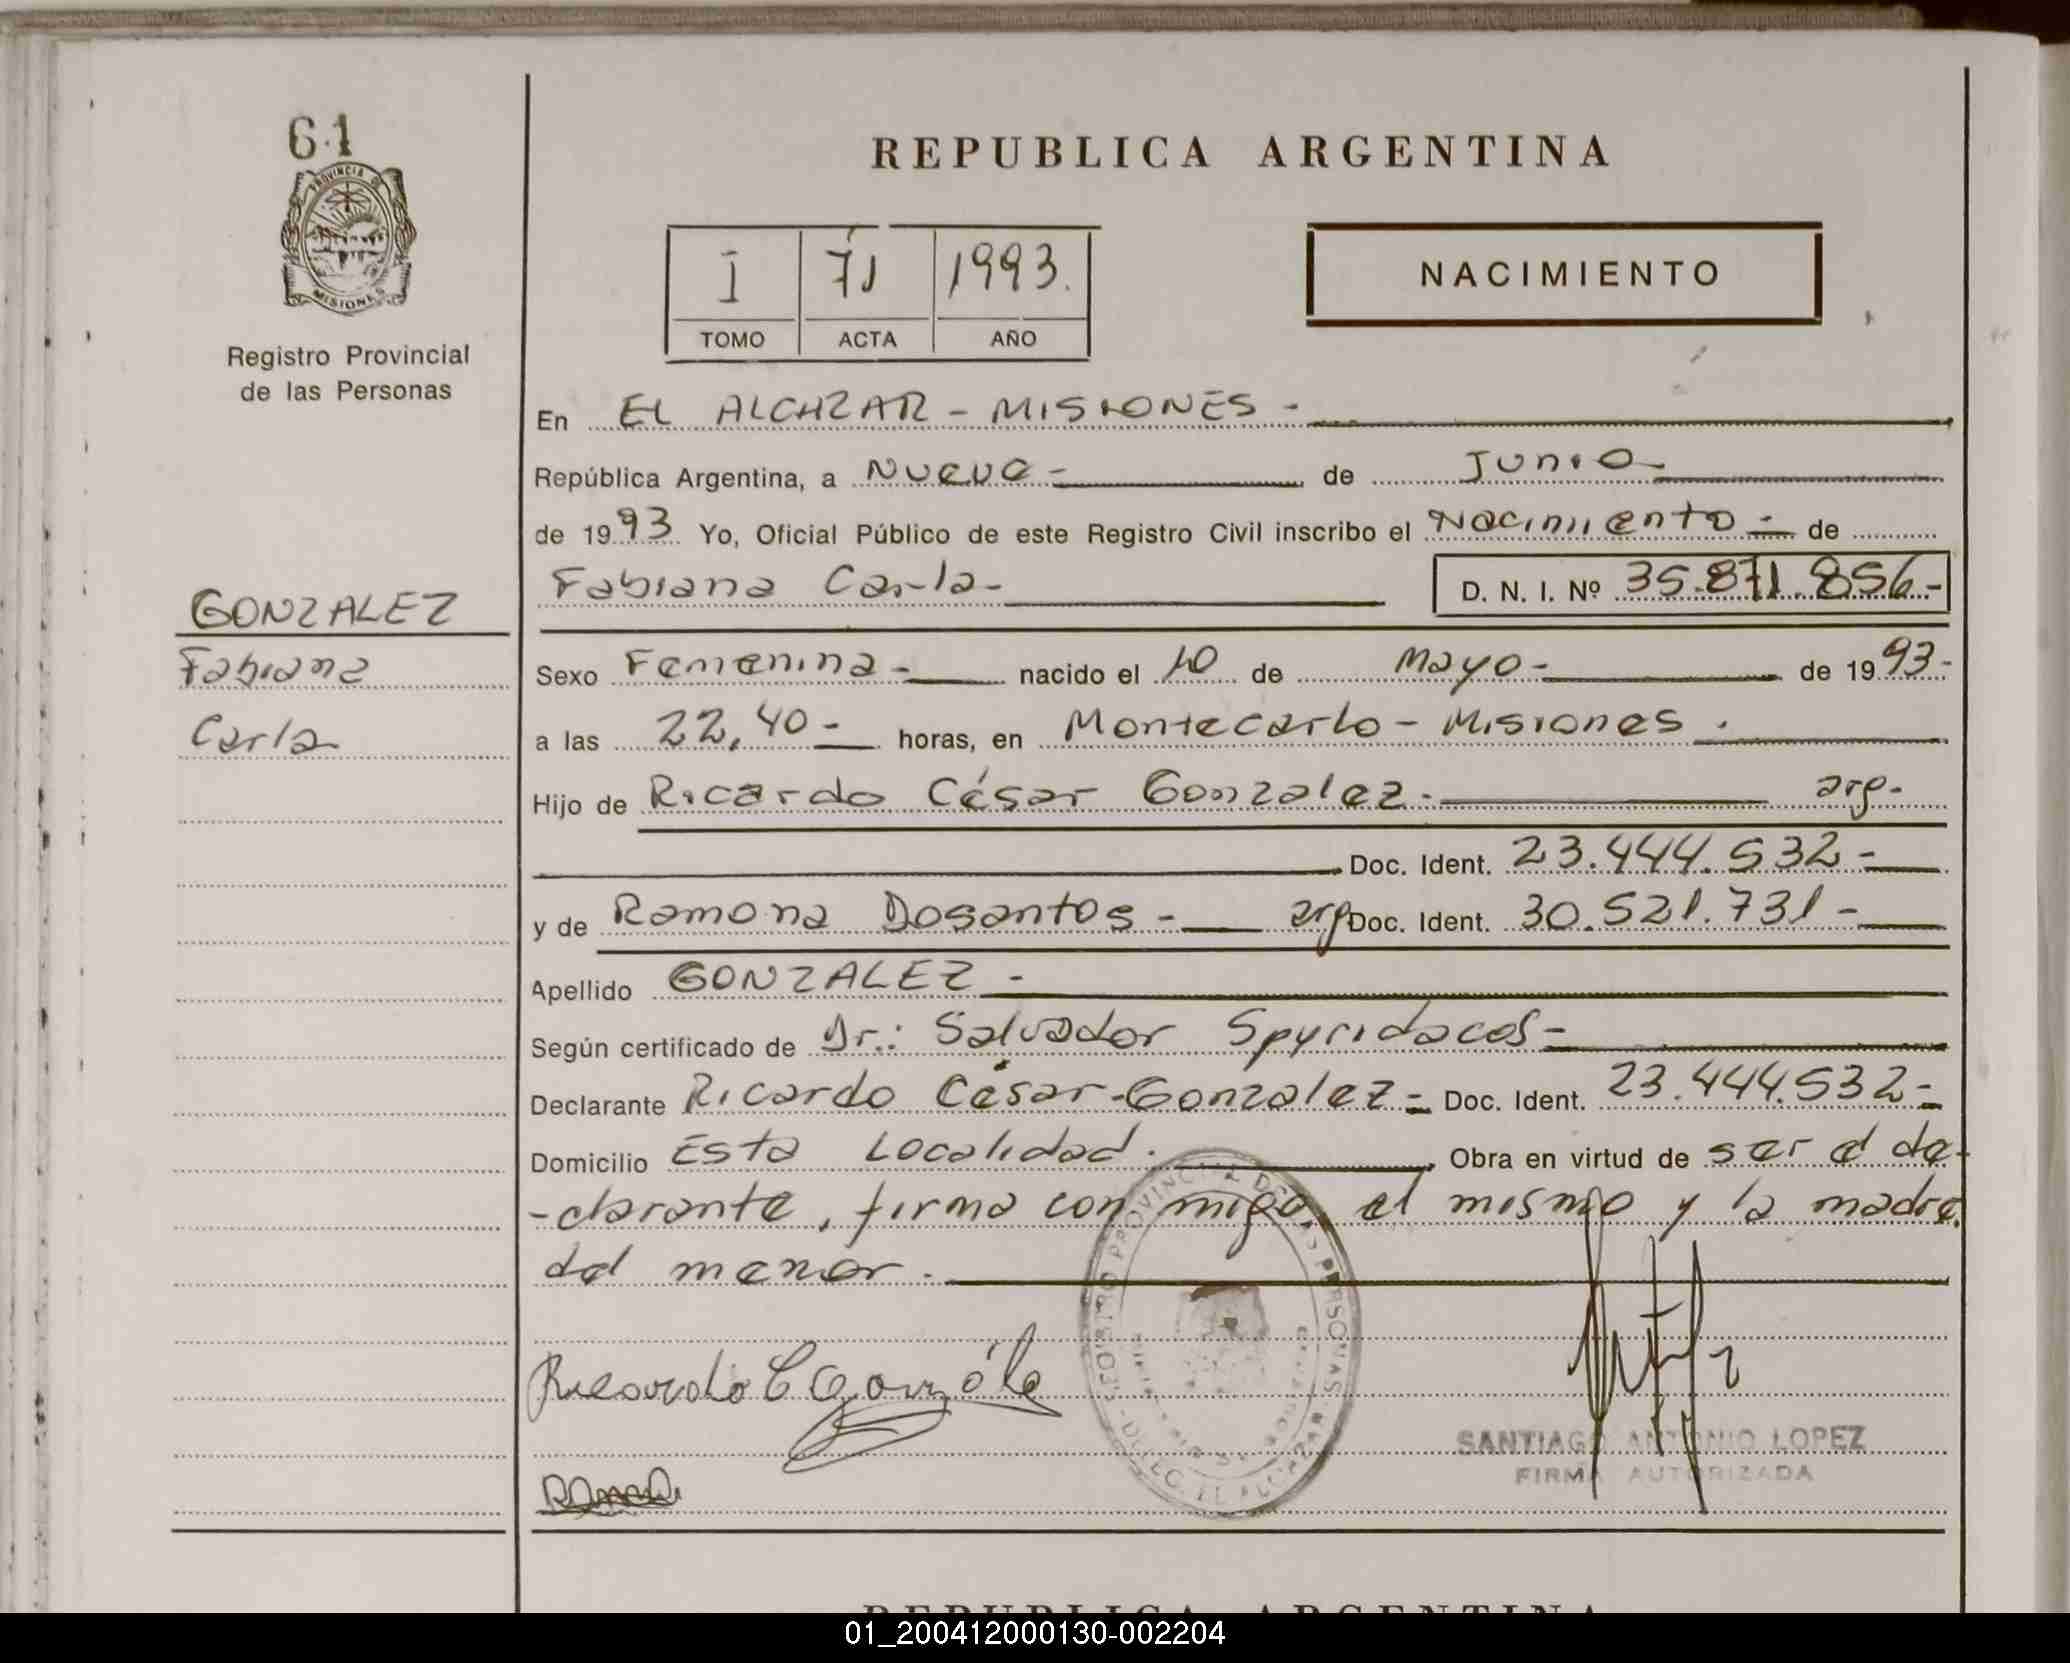 61
PROVINCIA DE
MISIONES
Registro Provincial
de las Personas
GONZALEZ
Fabiana
Carla
REPUBLICA ARGENTINA
I 71 1993.
TOMO ACTA AÑO
NACIMIENTO
En EL ALCAZAR - MISIONES -
República Argentina, a Nueve - de Junio -
de 1993 Yo, Oficial Público de este Registro Civil inscribo el Nacimiento - de
Fabiana Carla - D. N. I. Nº 35.871.856 -
Sexo Femenina - nacido el 10 de Mayo - de 1993 -
a las 22,40 - horas, en Montecarlo - Misiones .
Hijo de Ricardo César Gonzalez - arg -
Doc. Ident. 23.444.532 -
y de Ramona Dosantos - arg Doc. Ident. 30.521.731 -
Apellido GONZALEZ -
Según certificado de Dr.: Salvador Spyridacos -
Declarante Ricardo César Gonzalez - Doc. Ident. 23.444.532 -
Domicilio Esta Localidad . Obra en virtud de ser el de-
-clarante, firma con migo, el mismo y la madre
del menor .
Ricardo C Gonzále
SANTIAGO ANTONIO LOPEZ
FIRMA AUTORIZADA
REPUBLICA ARGENTINA
01_200412000130-002204